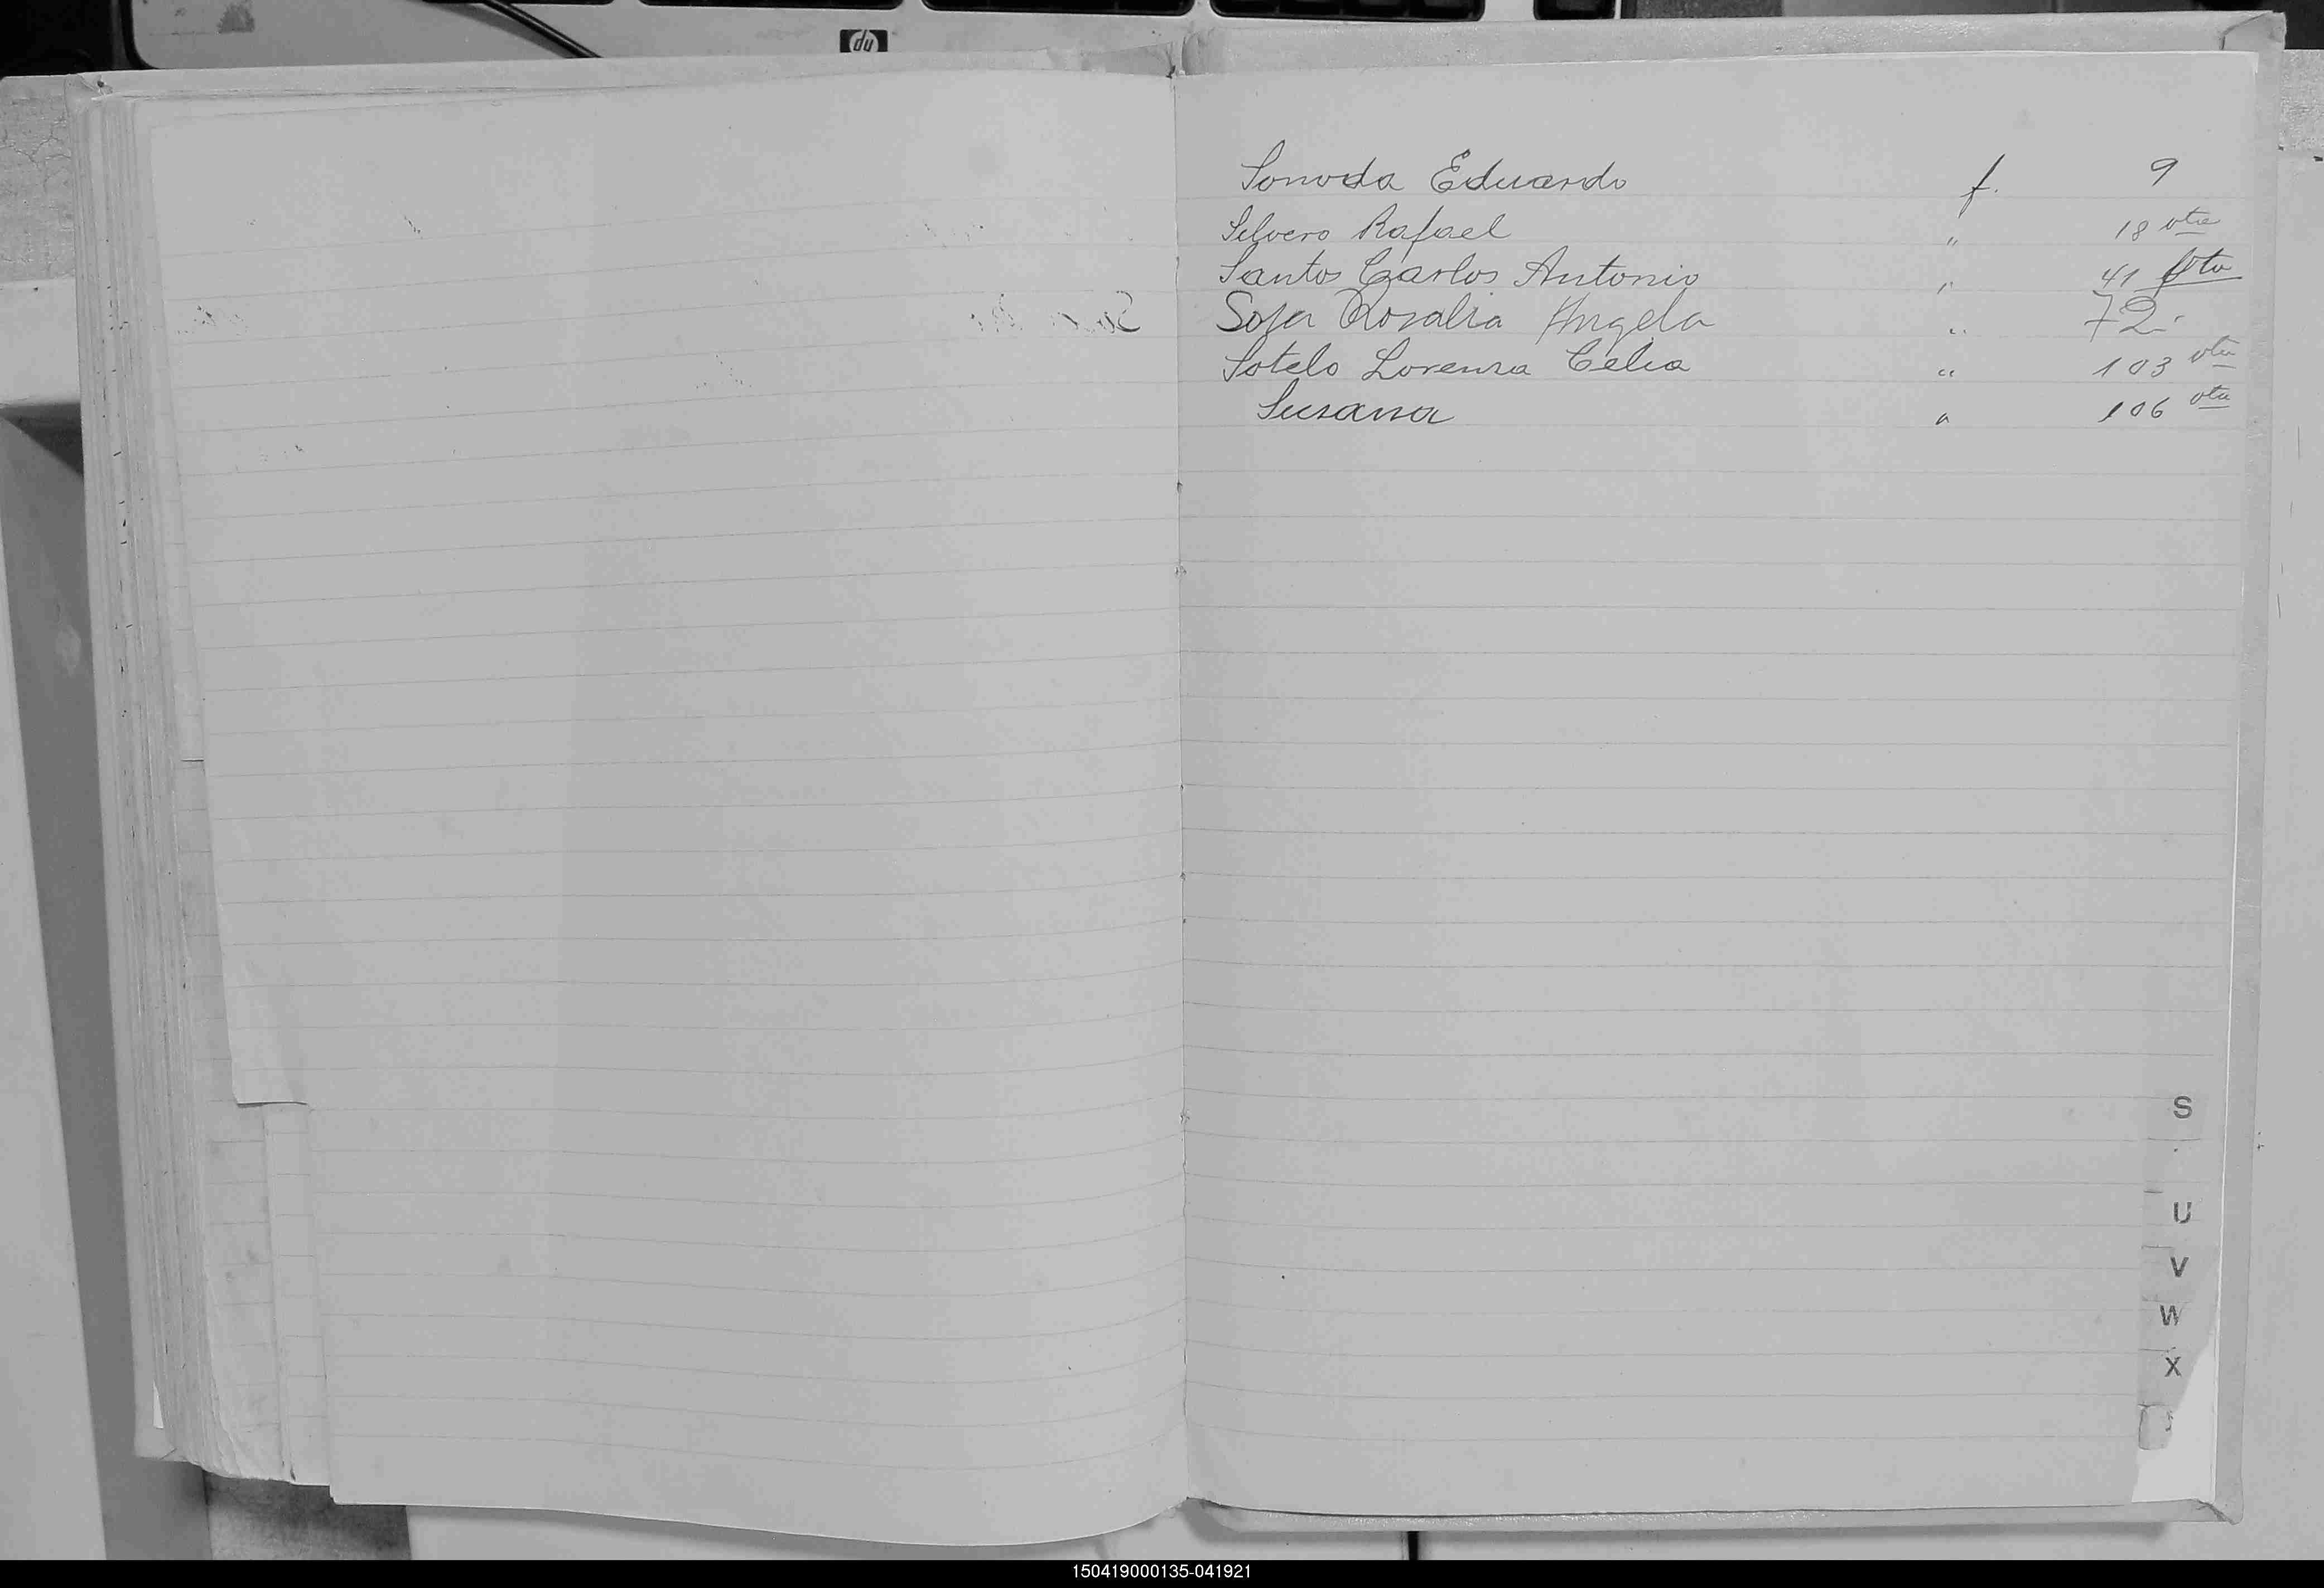 Sonoda Eduardo f. 9
Silvero Rafael " 18 vta
Santos Carlos Antonio " 41 vta
Sosa Rosalia Angela " 72
Sotelo Lorenza Celia " 103 vta
Susana " 106 vta
S
U
V
W
X
150419000135-041921